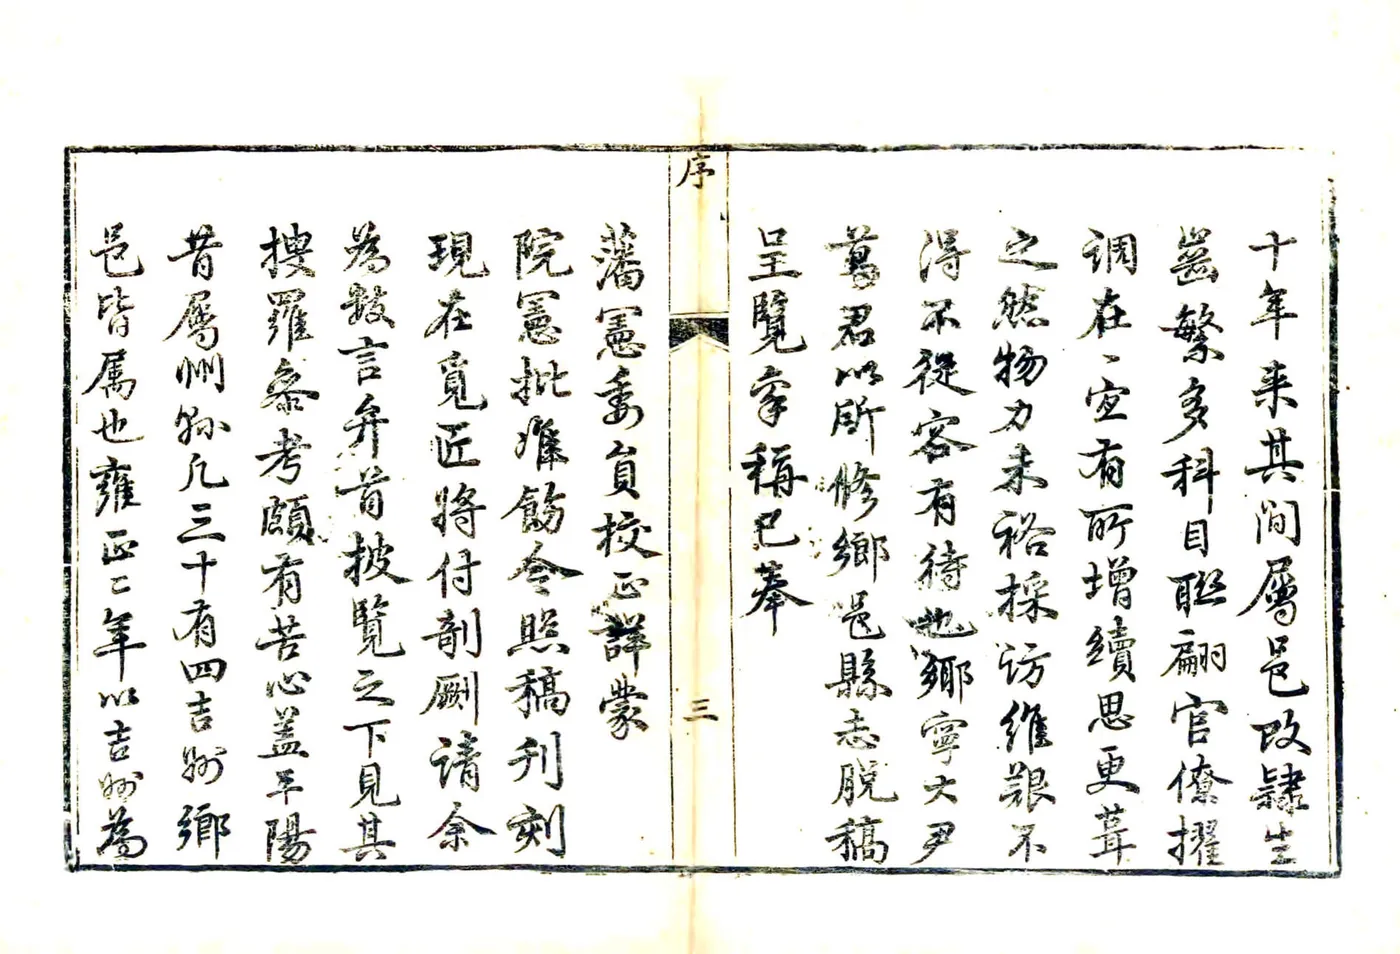 十年来其間屬邑改隷生
齒繁多科目聯翩官僚擢
調在〻宜有所增續思更葺
之然物力未裕採訪維艱不
得不從容有待也鄉寧大尹
葛君以所修鄉邑縣志脱稿
呈覽家稱已奉
序
三
藩憲委員校正詳蒙
院憲批准飭令照稿刋刻
現在覓匠將付剞劂請余
為数言弁首披覽之下見其
搜羅叅考頗有苦心盖平陽
昔屬州縣凡三十有四吉州鄉
邑皆属也雍正二年以吉州為